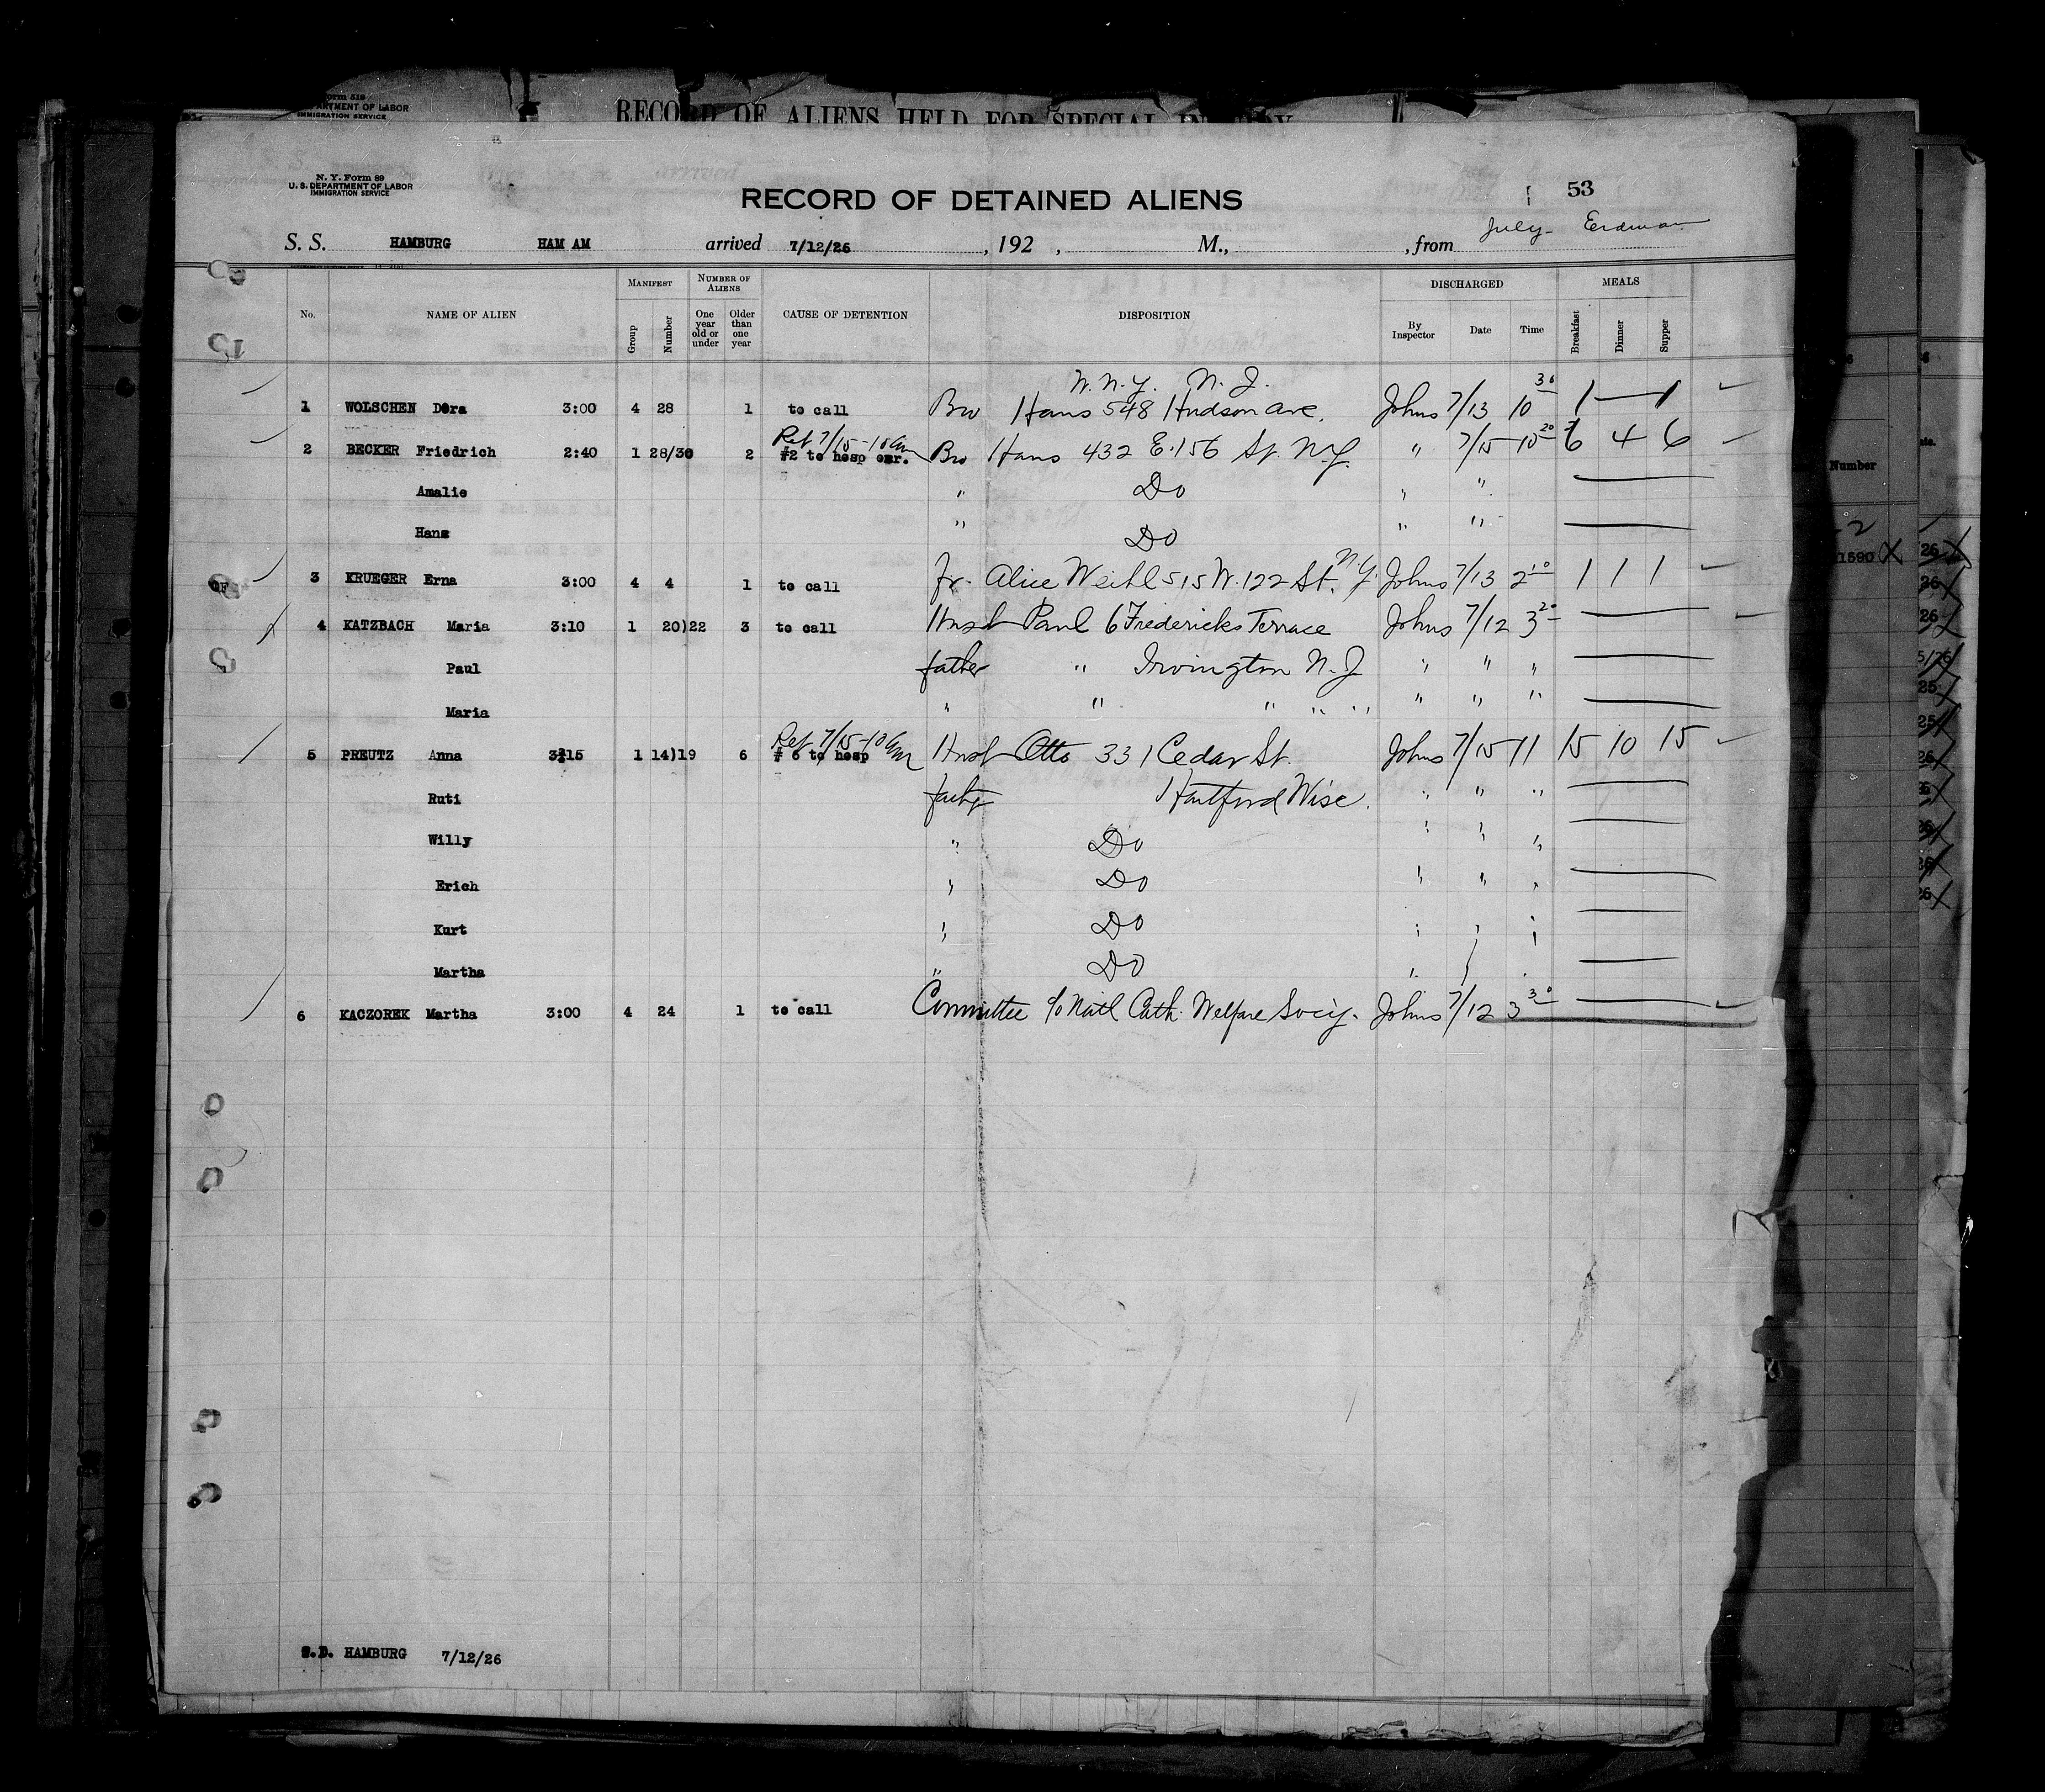 Form 519
DEPARTMENT OF LABOR
IMMIGRATION SERVICE
RECORD OF ALIENS HELD FOR SPECIAL INQUIRY
N. Y. Form 89
U. S. DEPARTMENT OF LABOR
IMMIGRATION SERVICE
RECORD OF DETAINED ALIENS
53
July- Erdman
S. S. HAMBURG HAM AM arrived 7/12/26, 192 , M., , from
No. NAME OF ALIEN MANIFEST Group Number NUMBER OF ALIENS One year old or under Older than one year CAUSE OF DETENTION DISPOSITION DISCHARGED By Inspector Date Time MEALS Breakfast Dinner Supper
W. N.Y. N. J.
1 WOLSCHEN Dora 3:00 4 28 1 to call Bro Hans 548 Hudson Ave. Johns 7/13 10 30 1 — 1
Ret 7/15-10am
2 BECKER Friedrich 2:40 1 28/30 2 #2 to hosp Bro Hans 432 E. 156 St. N.Y. " 7/15 10 20 6 4 6
Amalie " Do " "
Hans " Do " "
3 KRUEGER Erna 3:00 4 4 1 to call fr. Alice Weihl 515 W. 122 St. N.Y. Johns 7/13 2 10 1 1 1
4 KATZBACH Maria 3:10 1 20)22 3 to call Husb Paul 6 Fredericks Terrace Johns 7/12 3 20
Paul father " Irvington N. J " " "
Maria " " " " " " " "
Ret 7/15-10am
5 PREUTZ Anna 3:15 1 14)19 6 # 6 to hosp Husb Otto 331 Cedar St. Johns 7/15 11 15 10 15
Ruti father Hartford Wisc. " " "
Willy " Do " " "
Erich " Do " " "
Kurt " Do " " "
Martha " Do "
6 KACZOREK Martha 3:00 4 24 1 to call Committee c/o Natl Cath. Welfare Socy. Johns 7/12 3 30
HAMBURG 7/12/26
Number
1590